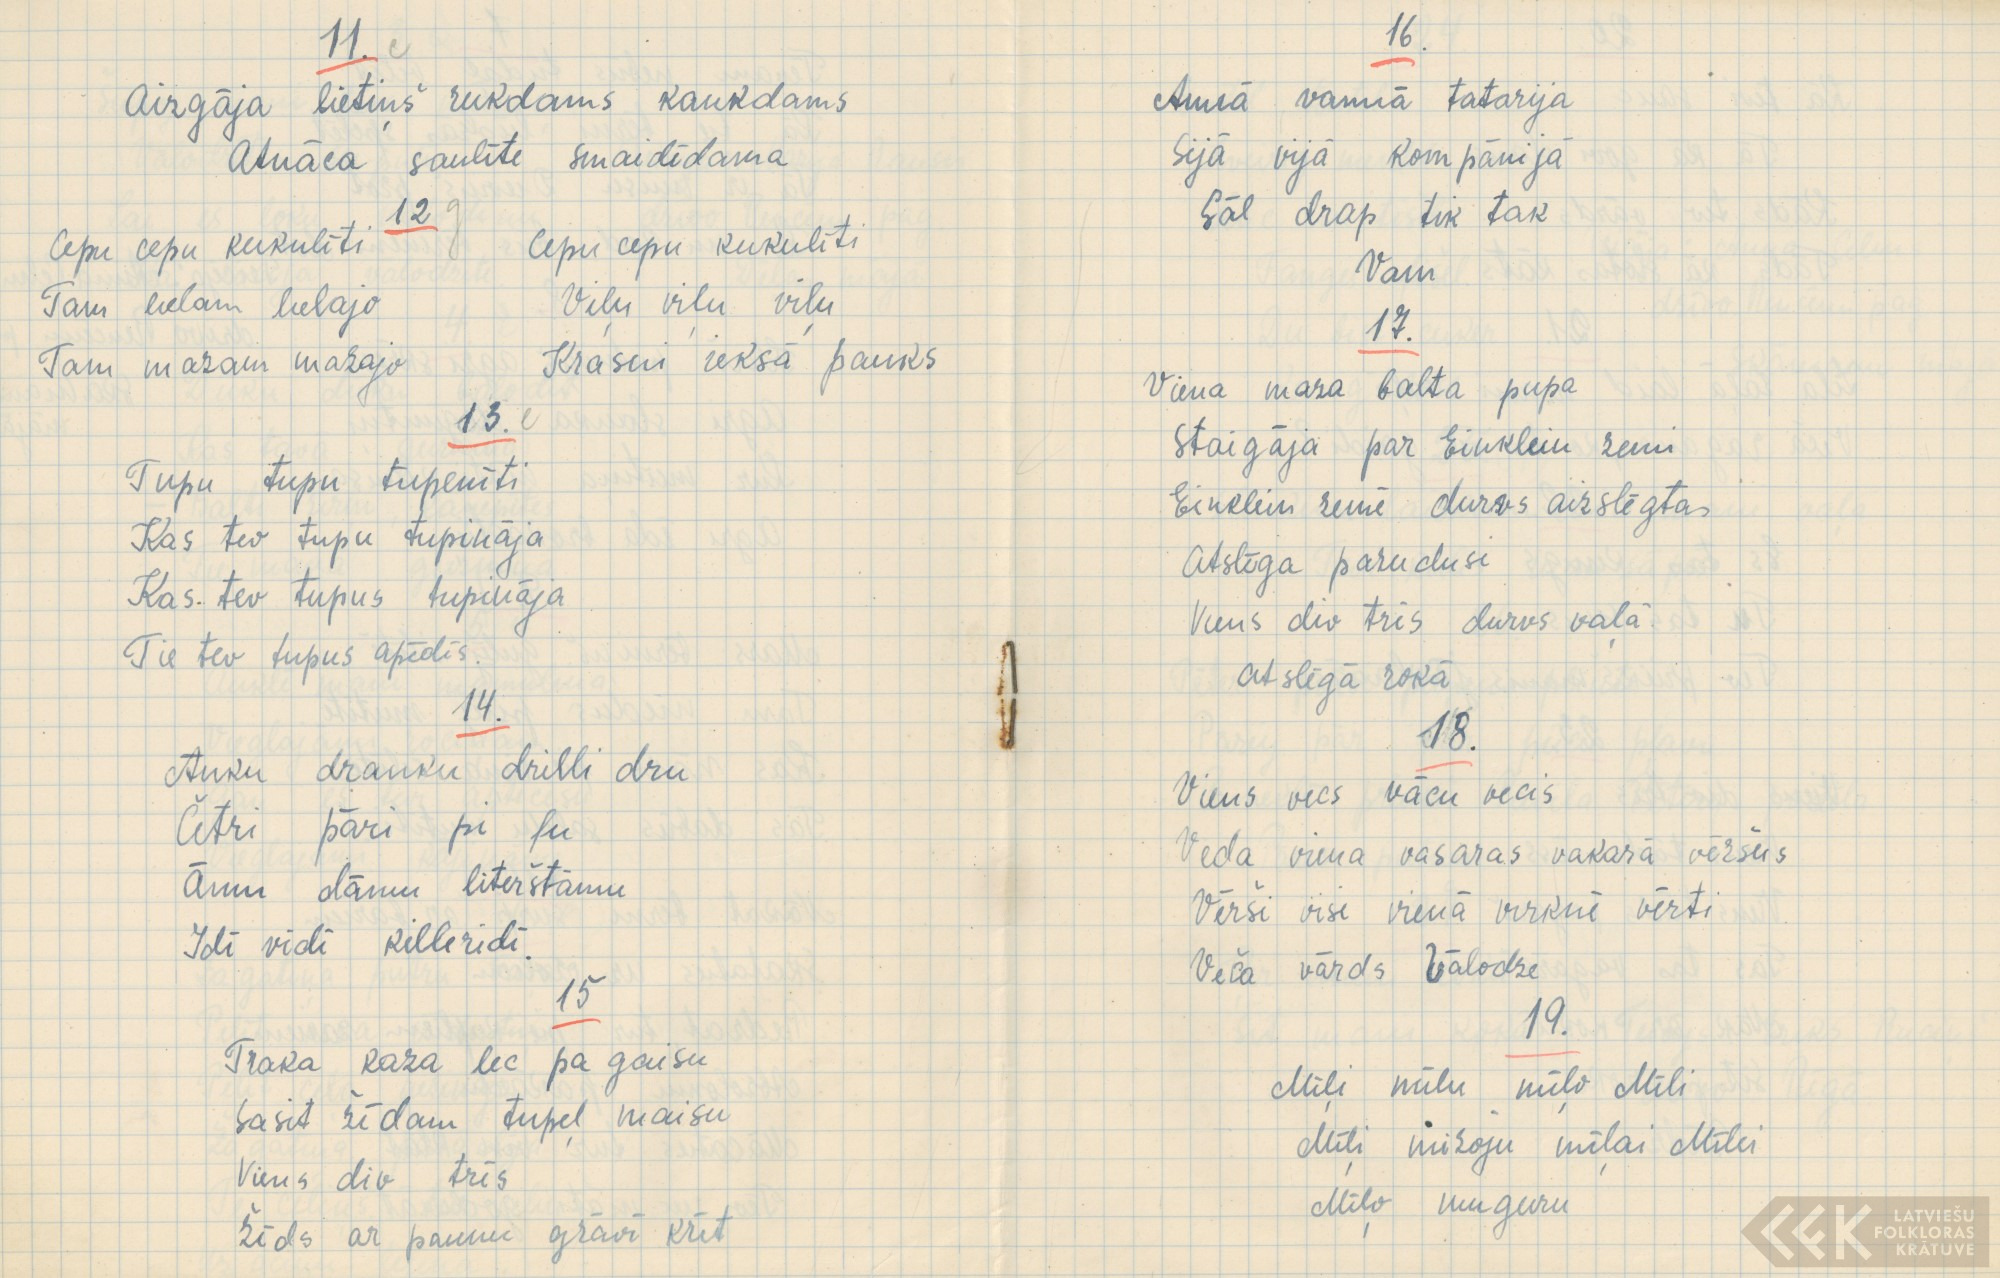 11. e
Aizgāja lietiņš rukdams kaukdams
Atnāca saulīte smaidīdama
12 g
Cepu cepu kukulīti
Tam lielam lielajo
Tam mazam mazajo
Cepu cepu kukulīti
Viļu viļu viļu
Krāsni iekšā pauks
13. e
Tupu tupu tupenīti
Kas tev tupu tupināja
Kas tev tupus tupināja
Tie tev tupus apēdīs.
14.
Anku dranku drilli dru
Četri pāri pi fu
Ānu dānu literštānu
Idī vidī killeridī.
15
Traka kaza lec pa gaisu
Sasit žīdam tupeļ maisu
Viens div trīs
Žīds ar paunu grāvī krīt
16.
Annā vannā tatarija
Sijā vijā kompānijā
Sāl drap tik tak
Vam
17.
Viena maza balta pupa
Staigāja par Einklein zemi
Einklein zemē durvs aizslēgtas
Atslēga pazudusi
Viens div trīs durvs vaļā.
Atslēgā rokā
18.
Viens vecs vācu vecis
Veda viena vasaras vakarā vēršus
Vērši visi vienā virknē vērti
Veča vārds Vālodze
19.
Mīļi mīlu mīļo Mīli
Mīļi mizoju mīļai Mīlei
Mīļo muguru
LATVIEŠU
FOLKLORAS
KRĀTUVE